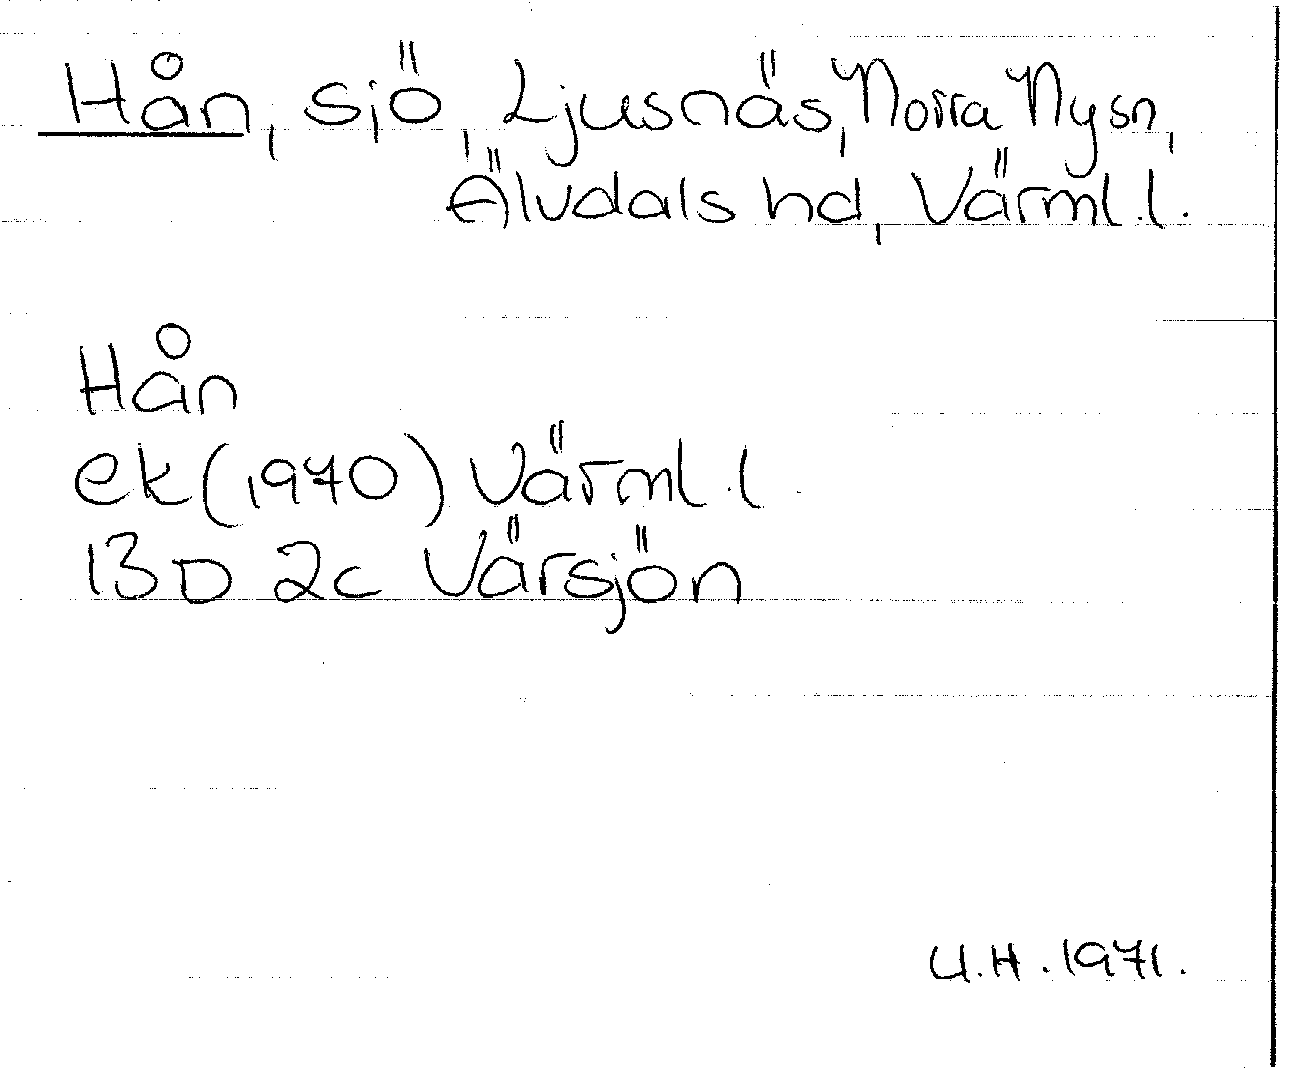 Hån, sjö, Ljusnäs, Norra Ny sn,
Älvdals hd, Värml. l.
Hån
ek (1970) Värml. l.
13D 2c Värsjön
U.H. 1971.